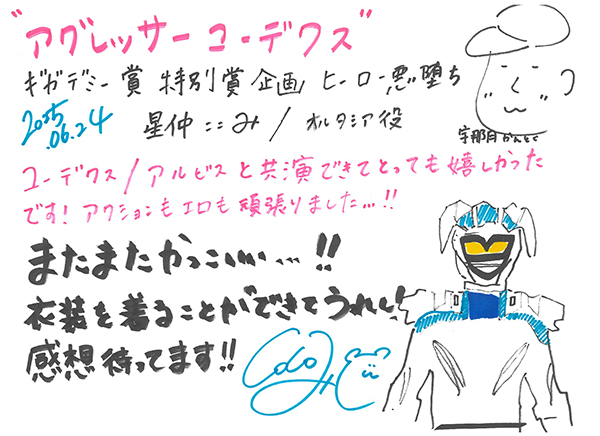 "アグレッサーコーデクス"
ギガデミー賞 特別賞企画 ヒーロー悪堕ち
2025.06.24
星仲ここみ/オルタシア役
宇那月かんとく
コーデクス/アルビスと共演できてとっても嬉しかった
です!アクションもエロも頑張りました…!!
またまたかっこいい…!!
衣装を着ることができてうれし!
感想待ってます!!